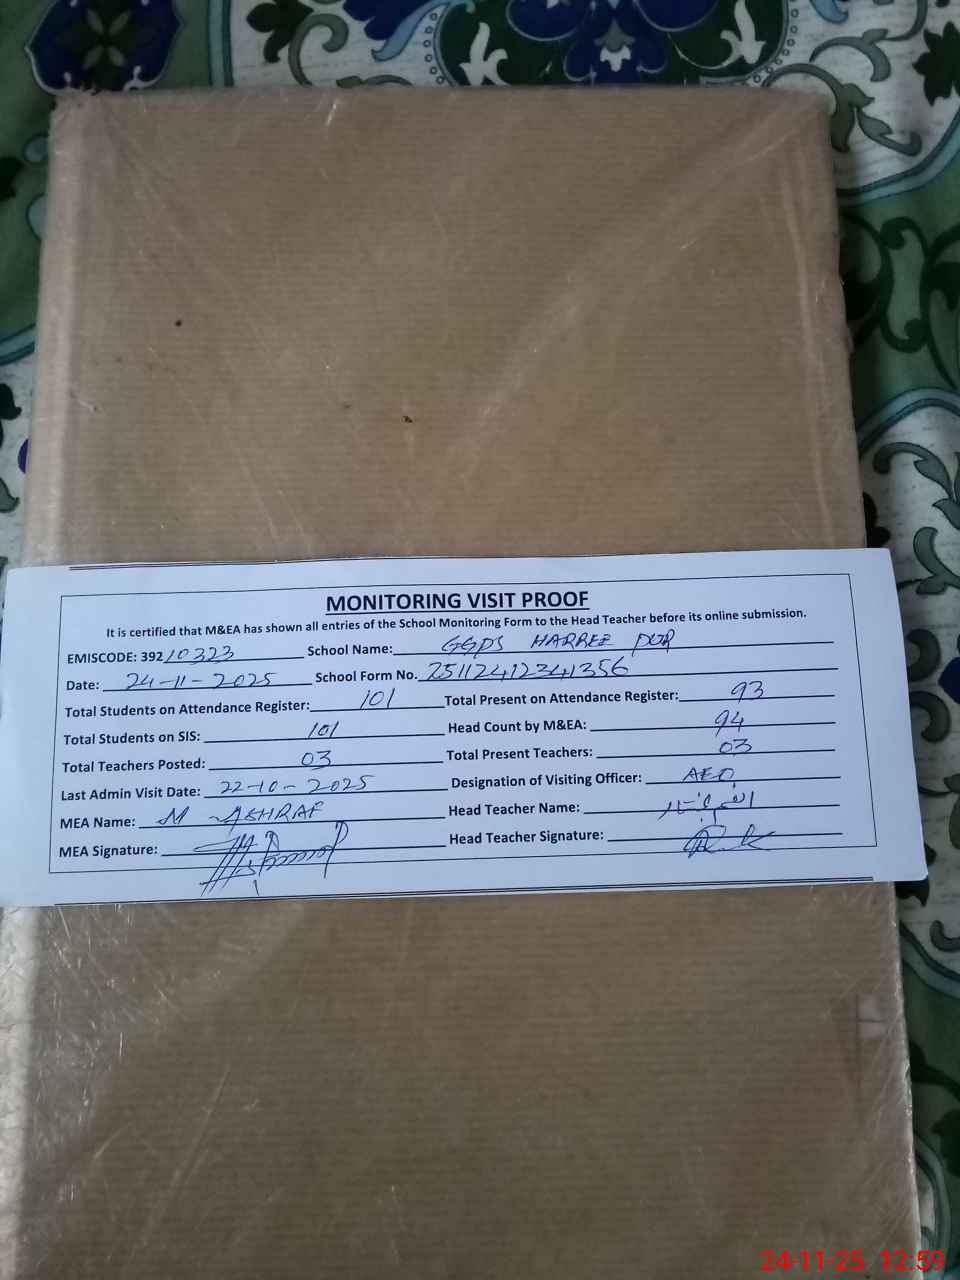 MONITORING VISIT PROOF
It is certified that M&EA has shown all entries of the School Monitoring Form to the Head Teacher before its online submission.
EMISCODE: 39210323 School Name: GGPS HARREE PUR
Date: 24-11-2025 School Form No. 25112412341356
Total Students on Attendance Register: 101 Total Present on Attendance Register: 93
Total Students on SIS: 101 Head Count by M&EA: 94
Total Teachers Posted: 03 Total Present Teachers: 03
Last Admin Visit Date: 22-10-2025 Designation of Visiting Officer: AEO
MEA Name: M ASHRAF Head Teacher Name:
MEA Signature: Head Teacher Signature:
24-11-25 12:59